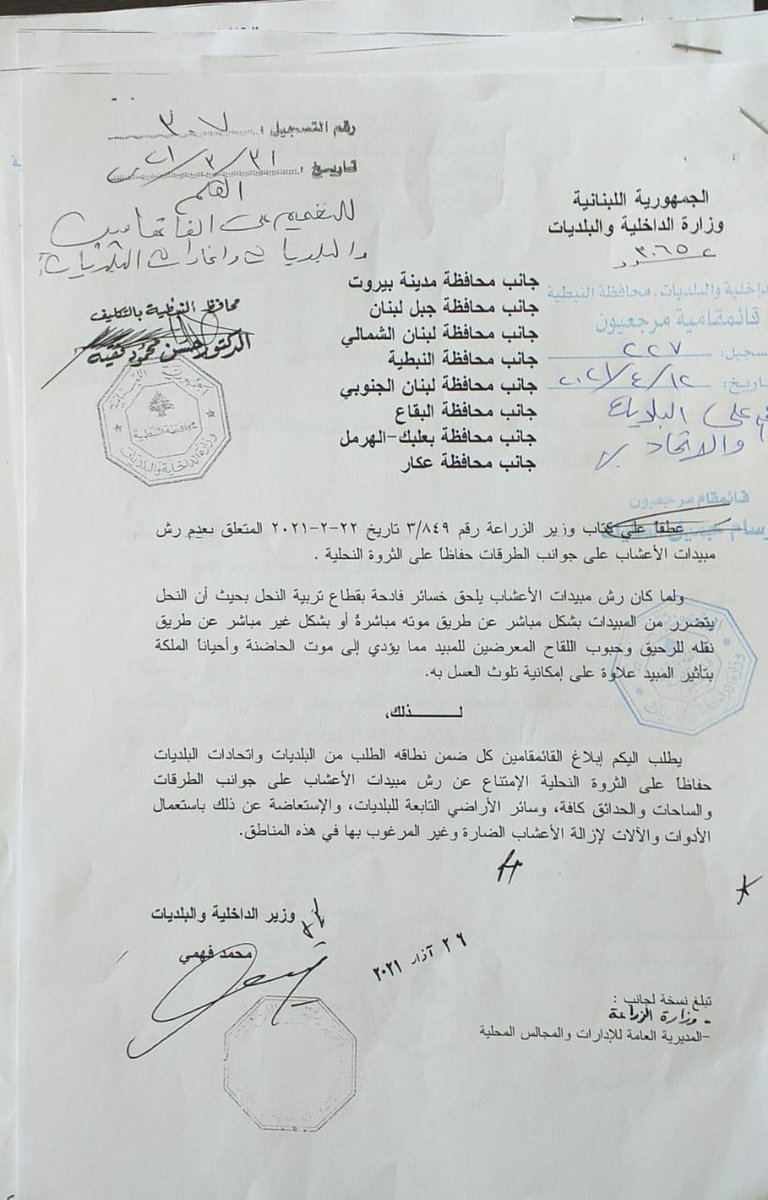 رقم التسجيل : ٣٠٧
تاريخ : ٢٠٢١/٣/٣١
القلم
للتعميم على القائمقامين
والبلديات واتحادات البلديات
محافظ النبطية بالتكليف
الدكتور حسن محمود فقيه
محافظة النبطية
وزارة الداخلية والبلديات
الجمهورية اللبنانية
وزارة الداخلية والبلديات
عدد ٣٠٦٥
داخلية والبلديات، محافظة النبطية
قائمقامية مرجعيون
سجيل: ٢٢٧
تاريخ: ٢٠٢١/٤/١٢
على البلديات
والاتحاد
قائمقام مرجعيون
وسام
جانب محافظة مدينة بيروت
جانب محافظة جبل لبنان
جانب محافظة لبنان الشمالي
جانب محافظة النبطية
جانب محافظة لبنان الجنوبي
جانب محافظة البقاع
جانب محافظة بعلبك-الهرمل
جانب محافظة عكار
عطفاً على كتاب وزير الزراعة رقم ٣/٨٤٩ تاريخ ٢٢-٢-٢٠٢١ المتعلق بعدم رش
مبيدات الأعشاب على جوانب الطرقات حفاظاً على الثروة النحلية .
ولما كان رش مبيدات الأعشاب يلحق خسائر فادحة بقطاع تربية النحل بحيث أن النحل
يتضرر من المبيدات بشكل مباشر عن طريق موته مباشرةً أو بشكل غير مباشر عن طريق
نقله للرحيق وحبوب اللقاح المعرضين للمبيد مما يؤدي إلى موت الحاضنة وأحياناً الملكة
بتأثير المبيد علاوة على إمكانية تلوث العسل به.
لـــــــذلك،
يطلب اليكم إبلاغ القائمقامين كل ضمن نطاقه الطلب من البلديات واتحادات البلديات
حفاظاً على الثروة النحلية الإمتناع عن رش مبيدات الأعشاب على جوانب الطرقات
والساحات والحدائق كافة، وسائر الأراضي التابعة للبلديات، والإستعاضة عن ذلك باستعمال
الأدوات والآلات لإزالة الأعشاب الضارة وغير المرغوب بها في هذه المناطق.
وزير الداخلية والبلديات
محمد فهمي
٢٦ آذار ٢٠٢١
تبلغ نسخة لجانب :
- وزارة الزراعة
-المديرية العامة للإدارات والمجالس المحلية